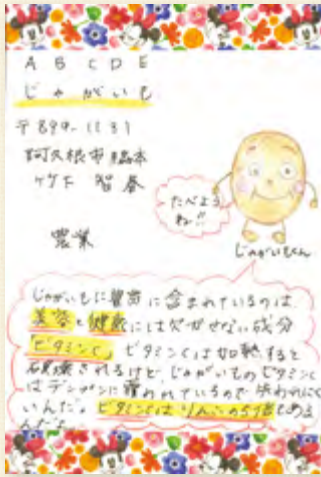 A B C D E
じゃがいも
〒899-1131
阿久根市脇本
竹下 智春
農業
たべよう
ね!!
じゃがいもくん
じゃがいもに豊富に含まれているのは
美容と健康には欠かせない成分
「ビタミンC」ビタミンCは加熱すると
破壊されるけど、じゃがいものビタミンC
はデンプンに覆われているので失われにく
いんだよ。ビタミンCはりんごの5倍もある
んだよ